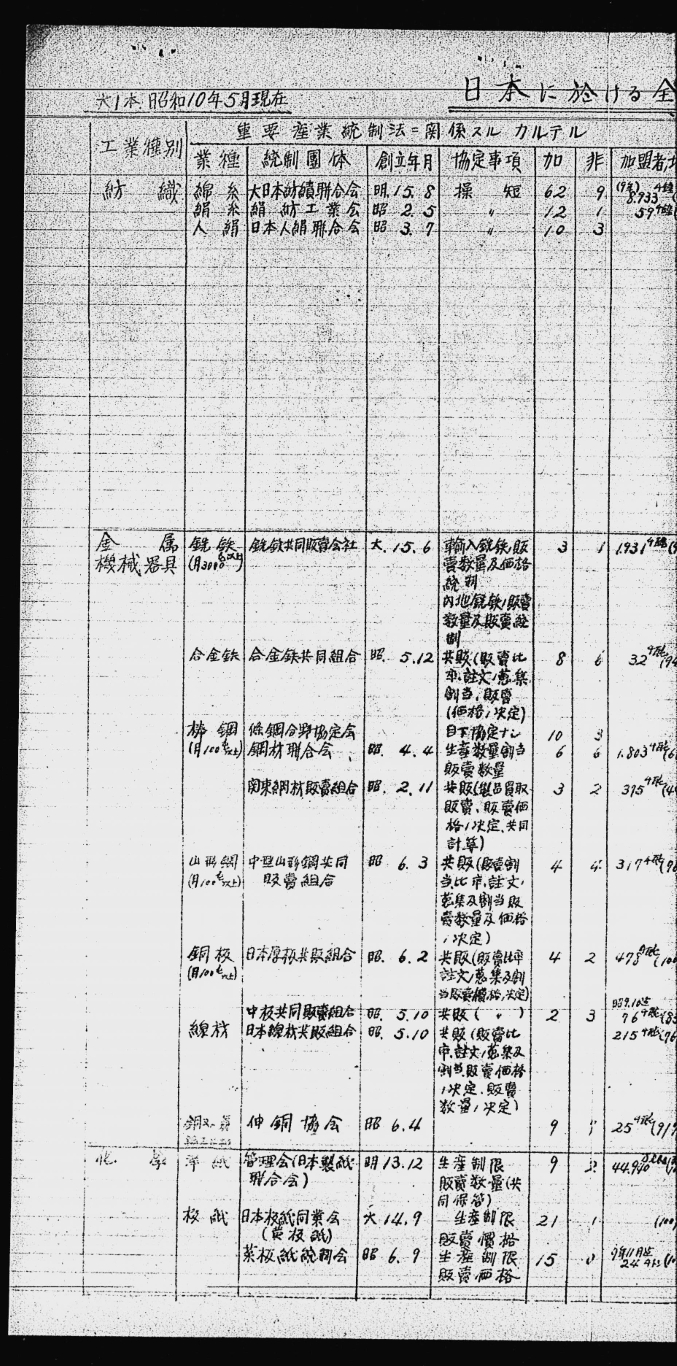 日本に於ける全
大1本 昭和10年5月現在
重要産業統制法ニ関係スル カルテル
工業種別 業種 統制団体 創立年月 協定事項 加 非 加盟者
紡織 綿糸 大日本紡績聯合会 明.15.8 操短 62 9
絹糸 絹紡工業会 昭 2.5 〃 12 1
人絹 日本人絹聯合会 昭 3.7 〃 10 3
金属 銑鉄 銑鉄共同販売会社 大.15.6 輸入銑鉄、販 3 1
機械器具 売数量及価格
統制
内地銑鉄ノ販売
数量及販売統
制
合金鉄 合金鉄共同組合 昭. 5.12 共販(販売比 8 6
率、註文ノ蒐集
割当、販売
(価格ノ決定)
棒鋼 條鋼分野協定会 目下協定ナシ 10 3
鋼材聯合会 昭. 4.4 生産数量割当 6 6
販売数量
関東鋼材販売組合 昭. 2.11 共販(製品買取 3 2
販売、販売価
格ノ決定、共同
計算)
山形鋼 中型山形鋼共同 昭 6.3 共販(販売割 4 4
販売組合 当比率、註文ノ
蒐集及割当販
売数量及価格
ノ決定)
鋼板 日本厚板共販組合 昭. 6.2 共販(販売比率 4 2
註文ノ蒐集及割
当販売価格ノ決定)
中板共同販売組合 昭. 5.10 共販(〃) 2 3
線材 日本線材共販組合 昭. 5.10 共販(販売比
率、註文ノ蒐集及
割当、販売価格
ノ決定、販売
数量ノ決定)
伸銅協会 昭 6.4 9
化学 洋紙 管理会(日本製紙 明13.12 生産制限 9 2
聯合会) 販売数量(共
同保管)
板紙 日本板紙同業会 大14.9 生産制限 21 1
(黄板紙) 販売価格
茶板紙統制会 昭 6.9 生産制限 15 0
販売価格